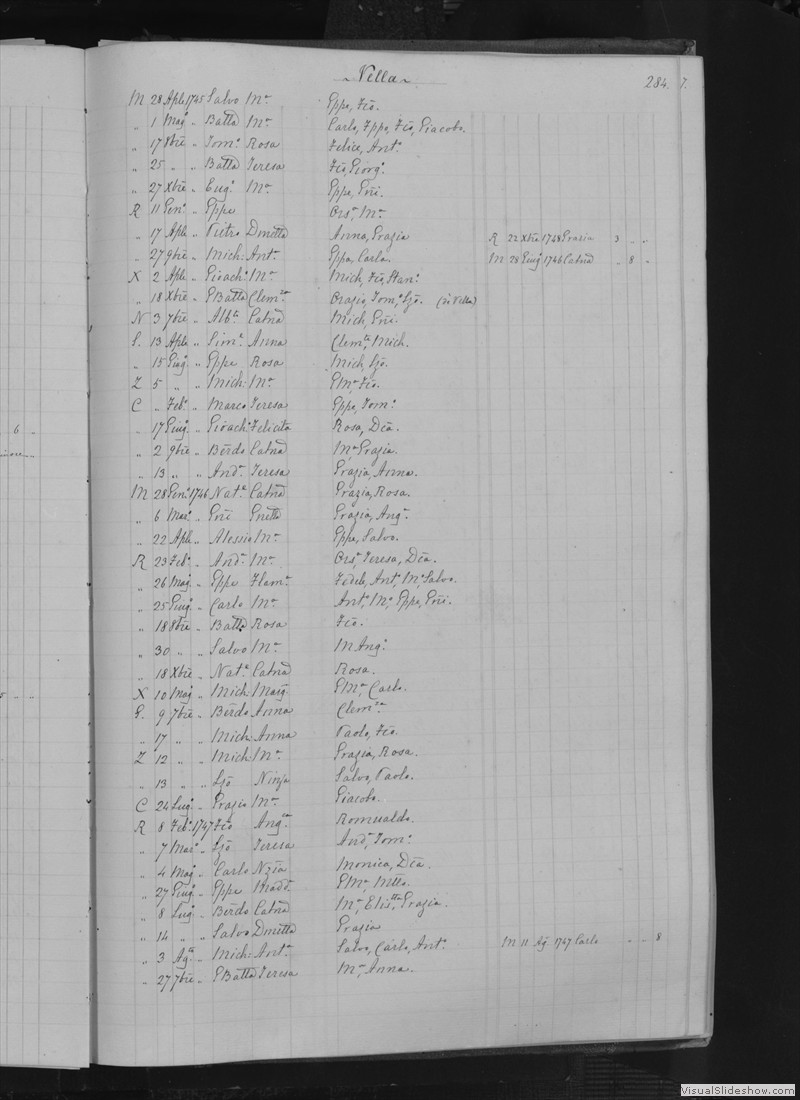 Vella 284. 7.
M 28 Aple 1745 Salvo Ma Eppe, Fco.
" 1 Magº " Batta Ma Carlo, Eppe, Fco, Giacobo.
" 17 8bre " Tomº Rosa Felice, Antº
" 25 " " Batta Teresa Fco, Giorgº
" 27 Xbre " Eugº Ma Eppe, Gni.
R 11 Genº " Eppe Orsª Ma
" 17 Aple " Pietro Dmetta Anna, Grazia R 22 Xbre 1748 Grazia 3 " "
" 27 9bre " Mich: Antª Eppa, Carla. M 28 Giugº 1746 Catna " 8 "
X 2 Aple " Gioachº Ma Mich, Fco, Stanº
" 18 Xbre " GBatta Clemza Orazio, Tomº Gjo. (in Vella)
N 3 7bre " Albta Catna Mich, Gni.
S. 13 Aple " Simª Anna Clemte, Mich.
" 15 Giugº " Eppe Rosa Mich, Gjo.
Z 5 " " Mich: Ma GMa Fco.
C " Febº " Marco Teresa Eppe, Tomº
6 " 17 Giugº " Gioach: Felicita Rosa, Dca.
" 2 9bre " Berdo Catna Ma Grazia.
" 13 " " Andª Teresa Grazia, Anna.
M 28 Genº 1746 Natª Catna Grazia, Rosa.
" 6 Marº " Gni Gnetta Grazia, Angª
" 22 Aple " Alessio Ma Eppe, Salvo.
R 23 Febº " Andª Ma Orsª, Teresa, Dca.
" 26 Magº " Eppe Flamª Fedele, Antº, Mª Salvo.
" 25 Giugº " Carlo Ma Antº, Mº, Eppe, Gni.
" 18 8bre " Batta Rosa Fco.
" 30 " " Salvo Ma M Angº
" 18 Xbre " Natª Catna Rosa.
X 10 Magº " Mich: Marg Gma, Carlo.
G. 9 7bre " Berdo Anna Clemza
" 17 " " Mich: Anna Paolo, Fco.
Z 12 " " Mich: Ma Grazia, Rosa.
" 13 " " Gjo Ninfa Salvo, Paolo.
C 24 Lugº " Grazio Ma Giacobo.
R 8 Febº 1747 Fco Angca Romualdo.
" 7 Marº " Gjo Teresa Andª, Tomº
" 4 Magº " Carlo Nzia Monica, Dca.
" 27 Giugº " Eppe Maddª GMa Ntta.
" 8 Lugº " Berdo Catna Ma, Elistta, Grazia.
" 14 " " Salvo Dmetta Grazia
" 3 Agto " Mich: Antª Salvo, Carlo, Antº M 11 Ag 1747 Carlo " " 8
" 27 7bre " GBatta Teresa Ma, Anna.
VisualSlideshow.com